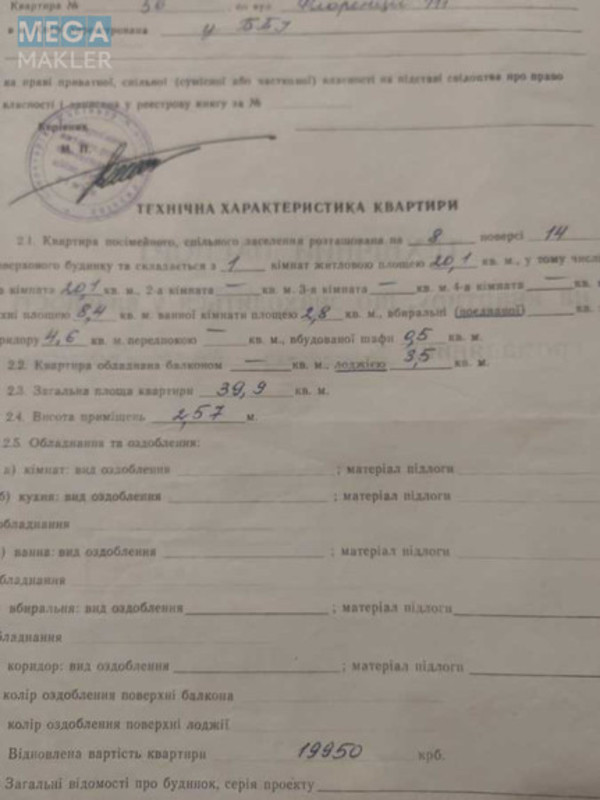 Квартира № 50 по вул. Флоренції
в у ББІ
MEGA
MAKLER
на праві приватної, спільної (сумісної або часткової) власності на підставі свідоцтва про право
власності і записана у реєстрову книгу за №
Керівник
М. П.
ТЕХНІЧНА ХАРАКТЕРИСТИКА КВАРТИРИ
2.1. Квартира посімейного, спільного заселення розташована на 8 поверсі 14
поверхового будинку та складається з 1 кімнат житловою площею 20,1 кв. м., у тому числі
кімната 20,1 кв. м., 2-а кімната — кв. м. 3-я кімната — кв. м. 4-я кімната — кв. м.
хні площею 8,4 кв. м. ванної кімнати площею 2,8 кв. м., вбиральні (поєднаної) кв. м.
ридору 4,6 кв. м. передпокою — кв. м., вбудованої шафи 0,5 кв. м.
2.2. Квартира обладнана балконом — кв. м., лоджією 3,5 кв. м.
2.3. Загальна площа квартири 39,9 кв. м.
2.4. Висота приміщень 2,57 м.
2.5. Обладнання та оздоблення:
а) кімнат: вид оздоблення ; матеріал підлоги
б) кухня: вид оздоблення ; матеріал підлоги
обладнання
) ванна: вид оздоблення ; матеріал підлоги
бладнання
вбиральня: вид оздоблення ; матеріал підлоги
бладнання
коридор: вид оздоблення ; матеріал підлоги
колір оздоблення поверхні балкона
колір оздоблення поверхні лоджії
Відновлена вартість квартири 19950 крб.
Загальні відомості про будинок, серія проекту